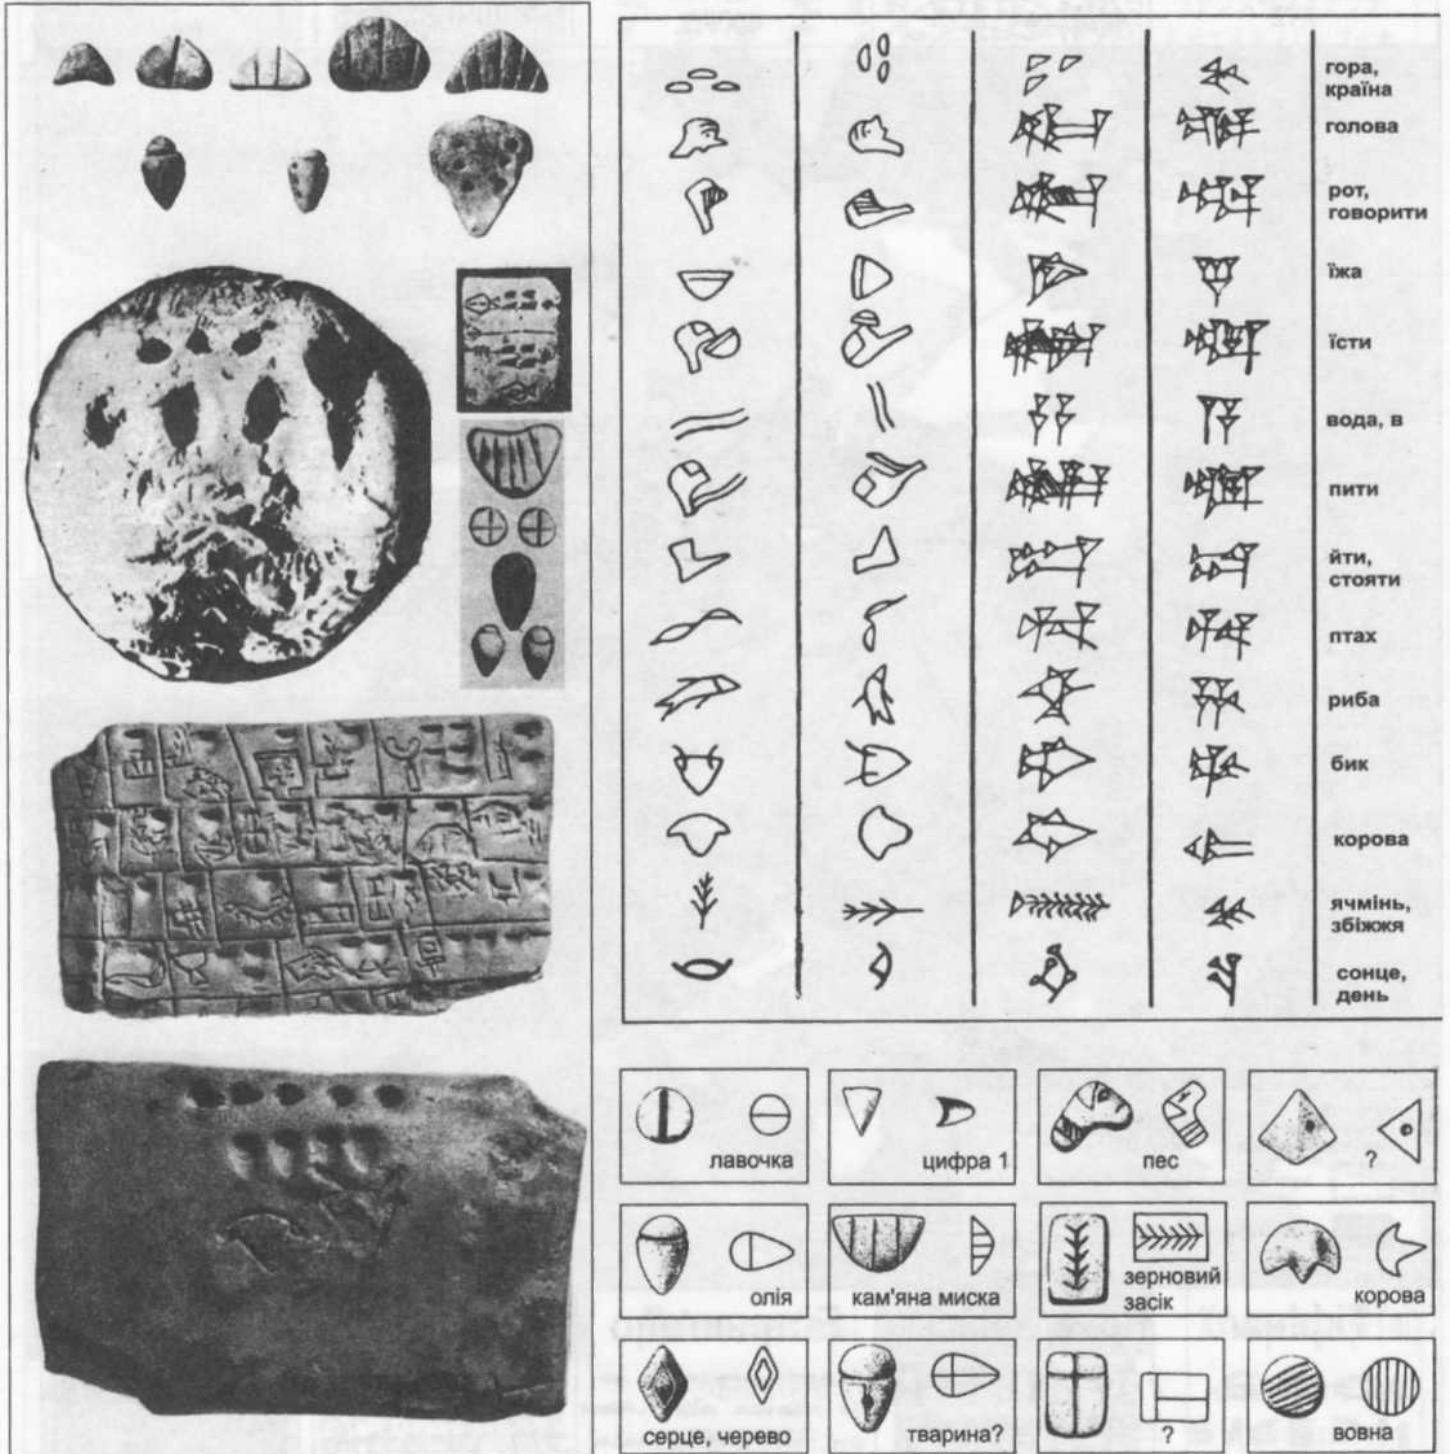 гора,
країна
голова
рот,
говорити
їжа
їсти
вода, в
пити
йти,
стояти
птах
риба
бик
корова
ячмінь,
збіжжя
сонце,
день
лавочка
цифра 1
пес
?
олія
кам'яна миска
зерновий
засік
корова
серце, черево
тварина?
?
вовна